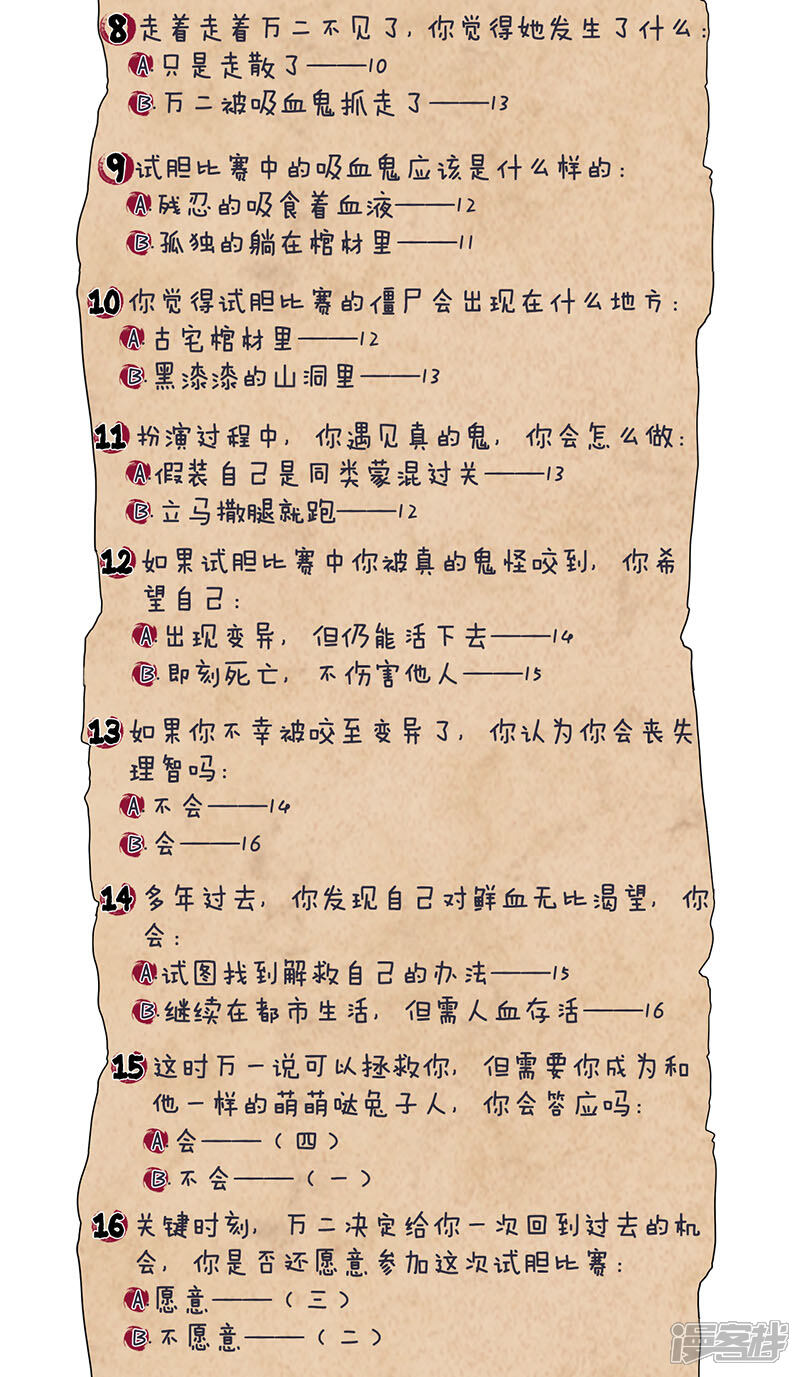 8 走着走着万二不见了，你觉得她发生了什么：
A.只是走散了——10
B.万二被吸血鬼抓走了——13
9 试胆比赛中的吸血鬼应该是什么样的：
A.残忍的吸食着血液——12
B.孤独的躺在棺材里——11
10 你觉得试胆比赛的僵尸会出现在什么地方：
A.古宅棺材里——12
B.黑漆漆的山洞里——13
11 扮演过程中，你遇见真的鬼，你会怎么做：
A.假装自己是同类蒙混过关——13
B.立马撒腿就跑——12
12 如果试胆比赛中你被真的鬼怪咬到，你希
望自己：
A.出现变异，但仍能活下去——14
B.即刻死亡，不伤害他人——15
13 如果你不幸被咬至变异了，你认为你会丧失
理智吗：
A.不会——14
B.会——16
14 多年过去，你发现自己对鲜血无比渴望，你
会：
A.试图找到解救自己的办法——15
B.继续在都市生活，但需人血存活——16
15 这时万一说可以拯救你，但需要你成为和
他一样的萌萌哒兔子人，你会答应吗：
A.会——（四）
B.不会——（一）
16 关键时刻，万二决定给你一次回到过去的机
会，你是否还愿意参加这次试胆比赛：
A.愿意——（三）
B.不愿意——（二）
漫客栈